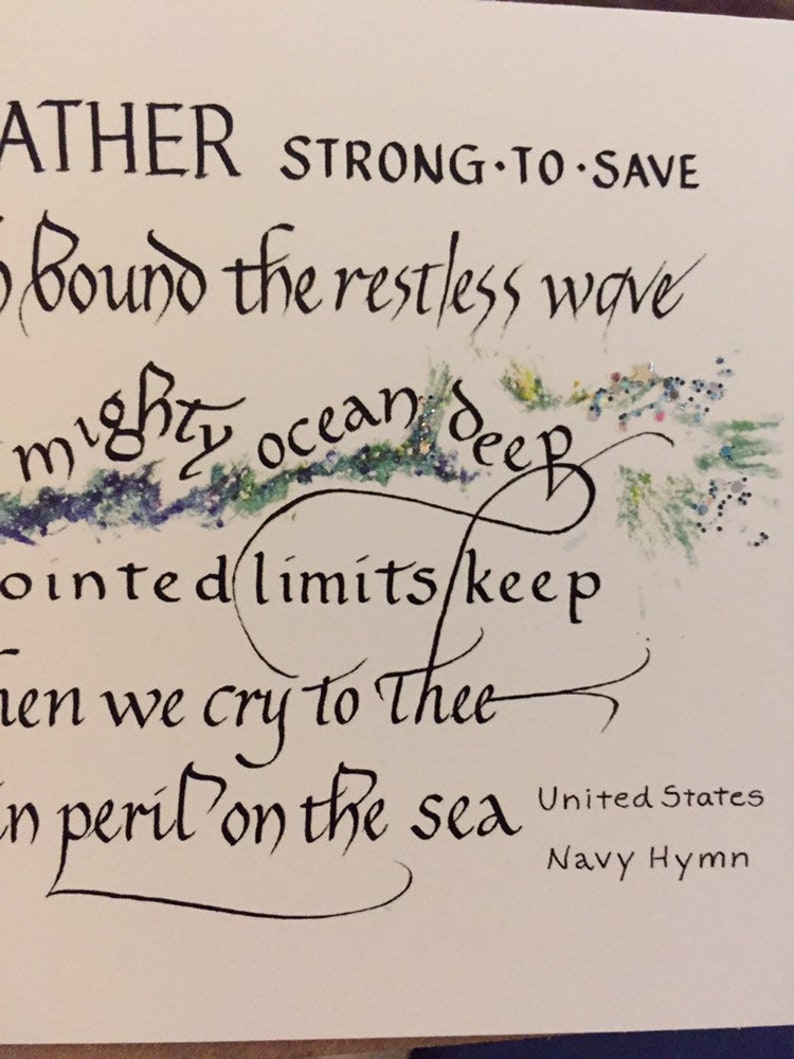 ATHER STRONG·TO·SAVE
bound the restless wave
mighty ocean deep
ointed limits keep
hen we cry to Thee
in peril on the sea
United States
Navy Hymn